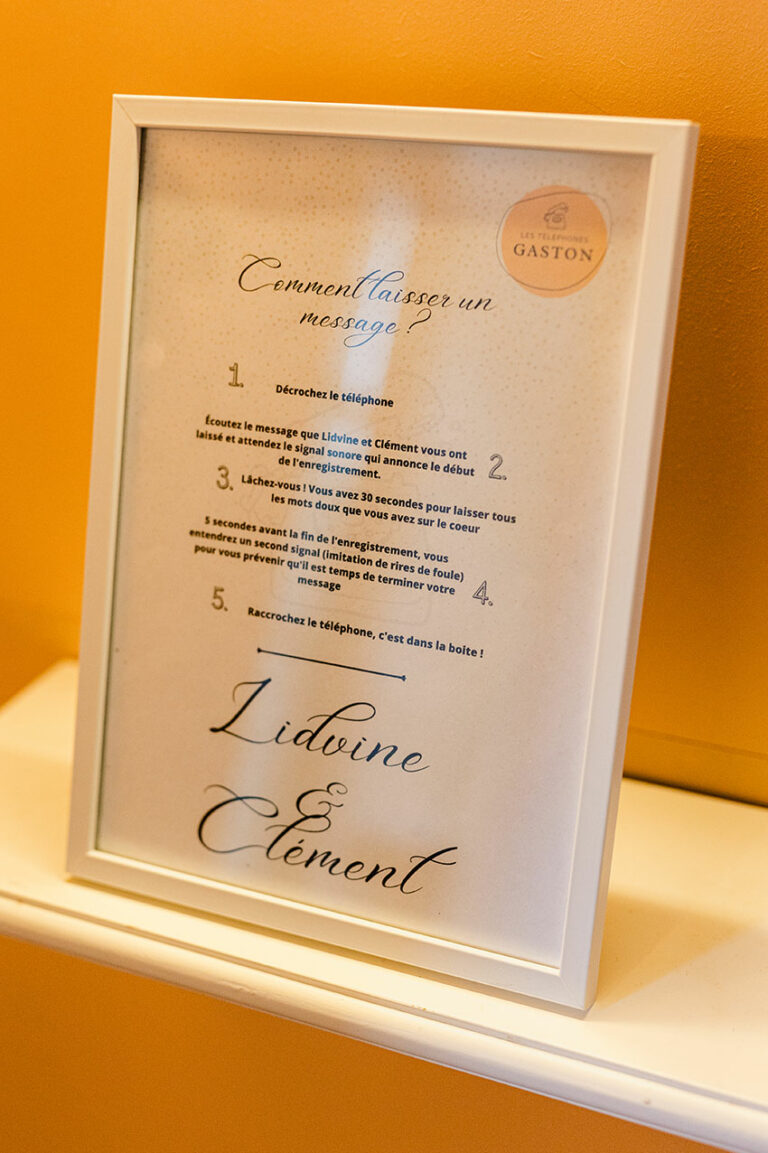 LES TÉLÉPHONES
GASTON
Comment laisser un
message ?
1.
Décrochez le téléphone
Écoutez le message que Lidvine et Clément vous ont
laissé et attendez le signal sonore qui annonce le début
de l'enregistrement.
2.
3.
Lâchez-vous ! Vous avez 30 secondes pour laisser tous
les mots doux que vous avez sur le coeur
5 secondes avant la fin de l'enregistrement, vous
entendrez un second signal (imitation de rires de foule)
pour vous prévenir qu'il est temps de terminer votre
message
4.
5.
Raccrochez le téléphone, c'est dans la boite !
Lidvine
&
Clément